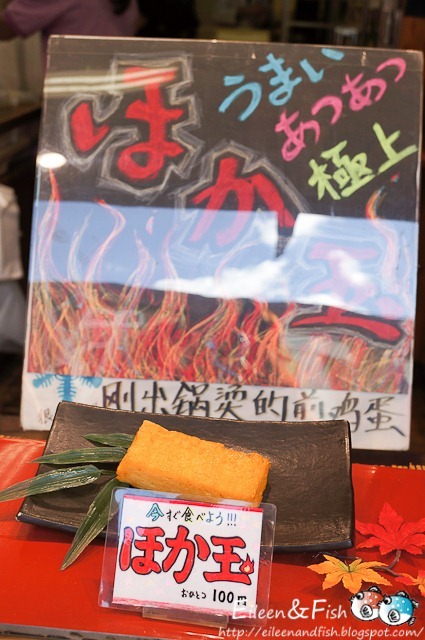 うまい
あつあつ
極上
ほか玉
刚出锅烫的煎鸡蛋
今すぐ食べよう!!!
ほか玉
おひとつ 100円
Eileen&Fish
http://eileenandfish.blogspot.com/